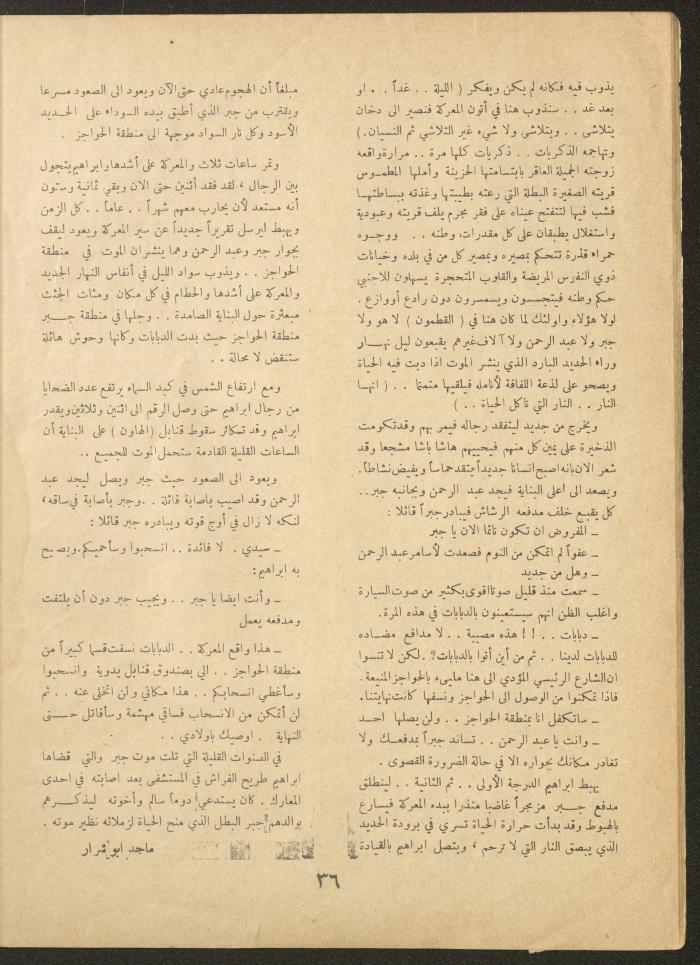 يذوب فيه فكانه لم يكن ويفكر ( الليلة . . غداً . . او
بعد غد . . سنذوب هنا في أتون المعركة فنصير الى دخان
يتلاشى . . ويتلاشى ولا شيء غير التلاشي ثم النسيان . )
وتهاجمه الذكريات . . ذكريات كلها مرة . . مرارة واقعه
زوجته الجميلة العاقر بابتسامتها الحزينة وأملها المطموس
قريته الصغيرة البطلة التي رعته بطيبتها وغذته ببساطتها
فشب فيها لتتفتح عيناه على فقر مجرم يلف قريته وعبودية
واستغلال يطبقان على كل مقدرات وطنه . . ووجوه
حمراء قذرة تتحكم بمصيره وبمصير كل من في بلده وخيانات
ذوي النفوس المريضة والقلوب المتحجرة يسهلون للاجنبي
حكم وطنه فيتجسسون ويسمسرون دون رادع أووازع .
لولا هؤلاء واولئك لما كان هنا في ( القطمون ) لا هو ولا
جبر ولا عبد الرحمن ولا آلاف غيرهم يقبعون ليل نهار
وراء الحديد البارد الذي ينشر الموت اذا دبت فيه الحياة
ويصحو على لذعة اللفافة لأنامله فيلقيها متمتما . . ( انها
النار . . النار التي تاكل الحياة . . )
ويخرج من جديد ليتفقد رجاله فيمر بهم وقد تكومت
الذخيرة على يمين كل منهم فيحييهم هاشا باشا مشجعا وقد
شعر الان بانه اصبح انسانا جديداً يتقد حماساً ويفيض نشاطاً .
ويصعد الى أعلى البناية فيجد عبد الرحمن وبجانبه جبر . .
كل يقبع خلف مدفعه الرشاش فيبادر جبراً قائلا :
ــ المفروض ان تكون نائما الان يا جبر
ــ عفواً لم اتمكن من النوم فصعدت لأسامر عبد الرحمن
ــ وهل من جديد
ــ سمعت منذ قليل صوتا اقوى بكثير من صوت السيارة
واغلب الظن انهم سيستعينون بالدبابات في هذه المرة .
ــ دبابات . . ! ! هذه مصيبة . . لا مدافع مضاده
للدبابات لدينا . . ثم من أين أتوا بالدبابات ؟ . لكن لا تنسوا
ان الشارع الرئيسي المؤدي الى هنا مليء بالحواجز المنيعة .
فاذا تمكنوا من الوصول الى الحواجز ونسفها كانت نهايتنا .
ــ سأتكفل انا بمنطقة الحواجز . . ولن يصلها احد
ــ وانت يا عبد الرحمن . . تساند جبراً بمدفعك ولا
تغادر مكانك بجواره الا في حالة الضرورة القصوى .
يهبط ابراهيم الدرجة الأولى . . ثم الثانية . . لينطلق
مدفع جبر مزمجراً غاضبا منذرا ببدء المعركة فيسارع
بالهبوط وقد بدأت حرارة الحياة تسري في برودة الحديد
الذي يبصق النار التي لا ترحم ، ويتصل ابراهيم بالقيادة
مبلغاً أن الهجوم عادي حتى الآن ويعود الى الصعود مسرعا
ويقترب من جبر الذي أطبق بيده السوداء على الحديد
الأسود وكل نار السواد موجهة الى منطقة الحواجز .
وتمر ساعات ثلاث والمعركة على أشدها وابراهيم يتجول
بين الرجال ، لقد فقد أثنين حتى الان وبقي ثمانية وستون
أنه مستعد لأن يحارب معهم شهراً . . عاماً . . كل الزمن
ويهبط ليرسل تقريراً جديداً عن سير المعركة ويعود ليقف
بجوار جبر وعبد الرحمن وهما ينشران الموت في منطقة
الحواجز . . ويذوب سواد الليل في أنفاس النهار الجديد
والمعركة على أشدها والحطام في كل مكان ومئات الجثث
مبعثرة حول البناية الصامدة . . وجلها في منطقة جبر
منطقة الحواجز حيث بدت الدبابات وكانها وحوش هائلة
ستنقض لا محالة . .
ومع ارتفاع الشمس في كبد السماء يرتفع عدد الضحايا
من رجال ابراهيم حتى وصل الرقم الى اثنين وثلاثين ويقدر
ابراهيم وقد تكاثر سقوط قنابل ( الهاون ) على البناية أن
الساعات القليلة القادمة ستحمل الموت للجميع . .
ويعود الى الصعود حيث جبر ويصل ليجد عبد
الرحمن وقد اصيب باصابة قاتلة . . وجبر بأصابة في ساقه ،
لكنه لا زال في أوج قوته ويبادره جبر قائلا :
ــ سيدي . لا فائدة . . انسحبوا وسأحميكم . ويصيح
به ابراهيم :
ــ وأنت ايضا يا جبر . . ويجيب جبر دون أن يلتفت
ومدفعه يعمل
ــ هذا واقع المعركة . . الدبابات نسفت قسما كبيراً من
منطقة الحواجز . . الي بصندوق قنابل يدوية وانسحبوا
وسأغطي انسحابكم . . هذا مكاني ولن اتخلى عنه . . ثم
لن أتمكن من الانسحاب فساقي مهشمة وسأقاتل حتى
النهاية . اوصيك باولادي . .
في السنوات القليلة التي تلت موت جبر والتي قضاها
ابراهيم طريح الفراش في المستشفى بعد اصابته في احدى
المعارك . كان يستدعي دوماً سالم وأخوته ليذكرهم
بوالدهم جبر البطل الذي منح الحياة لزملائه نظير موته .
ماجد ابو شرار
٣٦